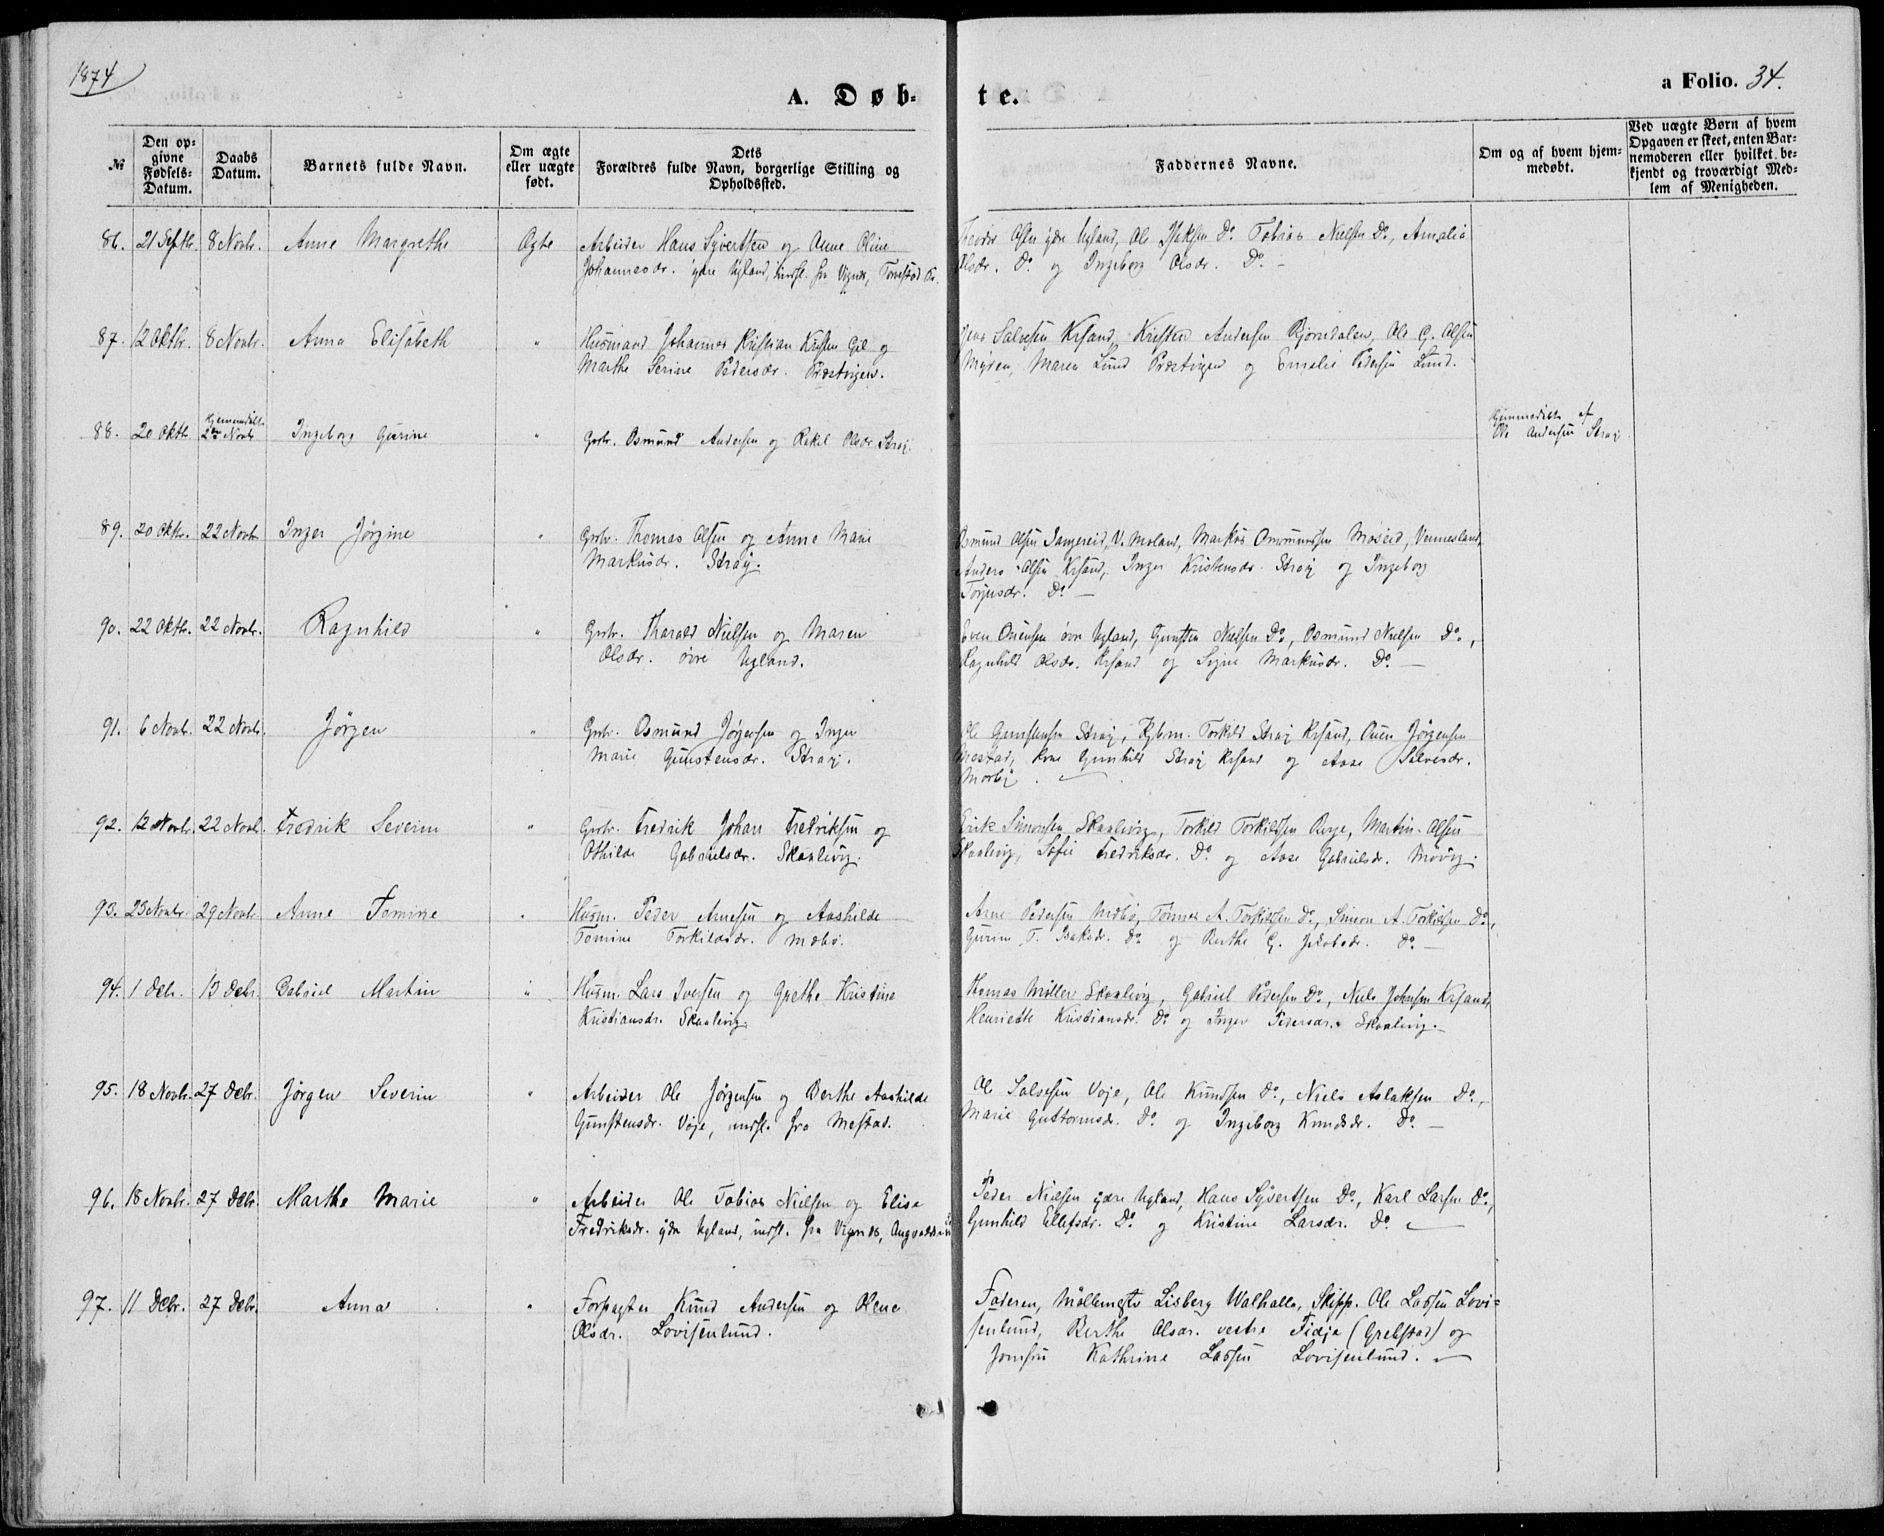 1874
A. Døb-
te.
a Folio. 34.
№
Den op-
givne
Fødsels-
Datum.
Daabs
Datum.
Barnets fulde Navn.
Om ægte
eller uægte
født.
Dets
Forældres fulde Navn, borgerlige Stilling og
Opholdssted.
Faddernes Navne.
Om og af hvem hjem-
medøbt.
Ved uægte Børn af hvem
Opgaven er skeet, enten Bar-
nemoderen eller hvilket be-
kjendt og troværdigt Med-
lem af Menigheden.
86. 21 Septbr. 8 Novbr. Anne Margrethe Ægte Arbeider Hans Syvertsen og Anne Oline
Johannesdr. ydre Ugland, indfl. fra Vignes, Tonstad
Olsen ydre Ugland, Ole Isaksen Do. Tobias Nielsen Do, Amalia
Olsdr. Do. og Ingeborg Olsdr. Do. –
87. 12 Oktbr. 8 Novbr. Anna Elisabeth " Husmand Johannes Kristian Knutsen Eie og
Marthe Serine Pedersdr. Præstvigen.
Salvesen Krsand, Kristen Andersen Bjørndalen, Ole G. Olsen
Myren, Maren Lund Præstvigen og Emelie Pedersen Lund.
88. 20 Oktbr. Hjemmedøbt
2den Novbr. Ingeborg Gurine " Grbr. Osmund Andersen og Rakel Olsdr. Straj.
Hjemmedøbt af
Ole Andersen Straj
89. 20 Oktbr. 22 Novbr. Inger Jørgine " Grbr. Thomas Olsen og Anne Marie
Markusdr. Straj.
Osmund Olsen V. Moland, Markus Ommundsen Moseid, Vennesland,
Anders Olsen Krsand, Inger Kristensdr. Straj og Ingeborg
Torjusdr. Do. —
90. 22 Oktbr. 22 Novbr. Ragnhild " Grbr. Tharald Nielsen og Maren
Olsdr. øvre Ugland.
Even Ouensen øvre Ugland, Gunsten Nielsen Do, Osmund Nielsen Do.,
Ragnhild Olsdr. Krsand og Signe Markusdr. Do. —
91. 6 Novbr. 22 Novbr. Jørgen " Grbr. Osmund Jørgensen og Inger
Marie Gunstensdr. Straj.
Ole Gunstensen Straj, Kjbm. Torkild Straj Krsand, Ouen Jørgensen
Mestad, Kone Gunhild Straj Krsand og Aase Salvesdr.
92. 12 Novbr. 22 Novbr. Fredrik Severin " Grbr. Fredrik Johan Fredriksen og
Othilde Gabrielsdr. Skaalevig.
Erik Simonsen Skaalevig, Torkild Torkildsen Berge, Martin Olsen
Skaalevig, Sofie Fredriksdr. Do. og Aase Gabrielsdr. Møvig.
93. 23 Novbr. 29 Novbr. Anne Tomine " Husm. Peder Arnesen og Aashilde
Tomine Torkildsdr. Mebø.
Arne Pedersen Mebø, Tønnes A. Torkildsen Do., Simeon A. Torkildsen Do.,
Gurine T. Isaksdr. Do. og Berthe G. Jakobsdr. Do. —
94. 1 Debr. 13 Debr. Gabriel Martin " Husm. Lars Iversen og Grethe Kristine
Kristiansdr. Skaalevig.
Thomas Møller Skaalevig, Gabriel Pedersen Do., Niels Johnsen Krsand,
Henriette Kristiansdr. Do. og Inger Pedersdr. Skaalevig.
95. 18 Novbr. 27 Debr. Jørgen Severin " Arbeider Ole Jørgensen og Berthe Aashilde
Gunstensdr. Voje, indfl. fra Mestad.
Ole Salvesen Voje, Ole Knudsen Do., Niels Aslaksen Do.,
Marie Guttormsdr. Do. og Ingeborg Knudsdr. Do. —
96. 18 Novbr. 27 Debr. Marthe Marie " Arbeider Ole Tobias Nielsen og Elise
Fredriksdr. ydre Ugland, indfl. fra Vignes,
Peder Nielsen ydre Ugland, Hans Syvertsen Do., Karl Larsen Do.,
Gunhild Ellefsdr. Do. og Kristine Larsdr. Do. —
97. 11 Debr. 27 Debr. Anna " Forpagter Knud Andersen og Olene
Olsdr. Lovisenlund.
Faderen, Møllemester Lisberg Walhalla, Skipp. Ole Lassen Lovi=
senlund, Berthe Olsdr. vestre Fidje (Grebstad) og
Jomfru Kathrine Lassen Lovisenlund. —